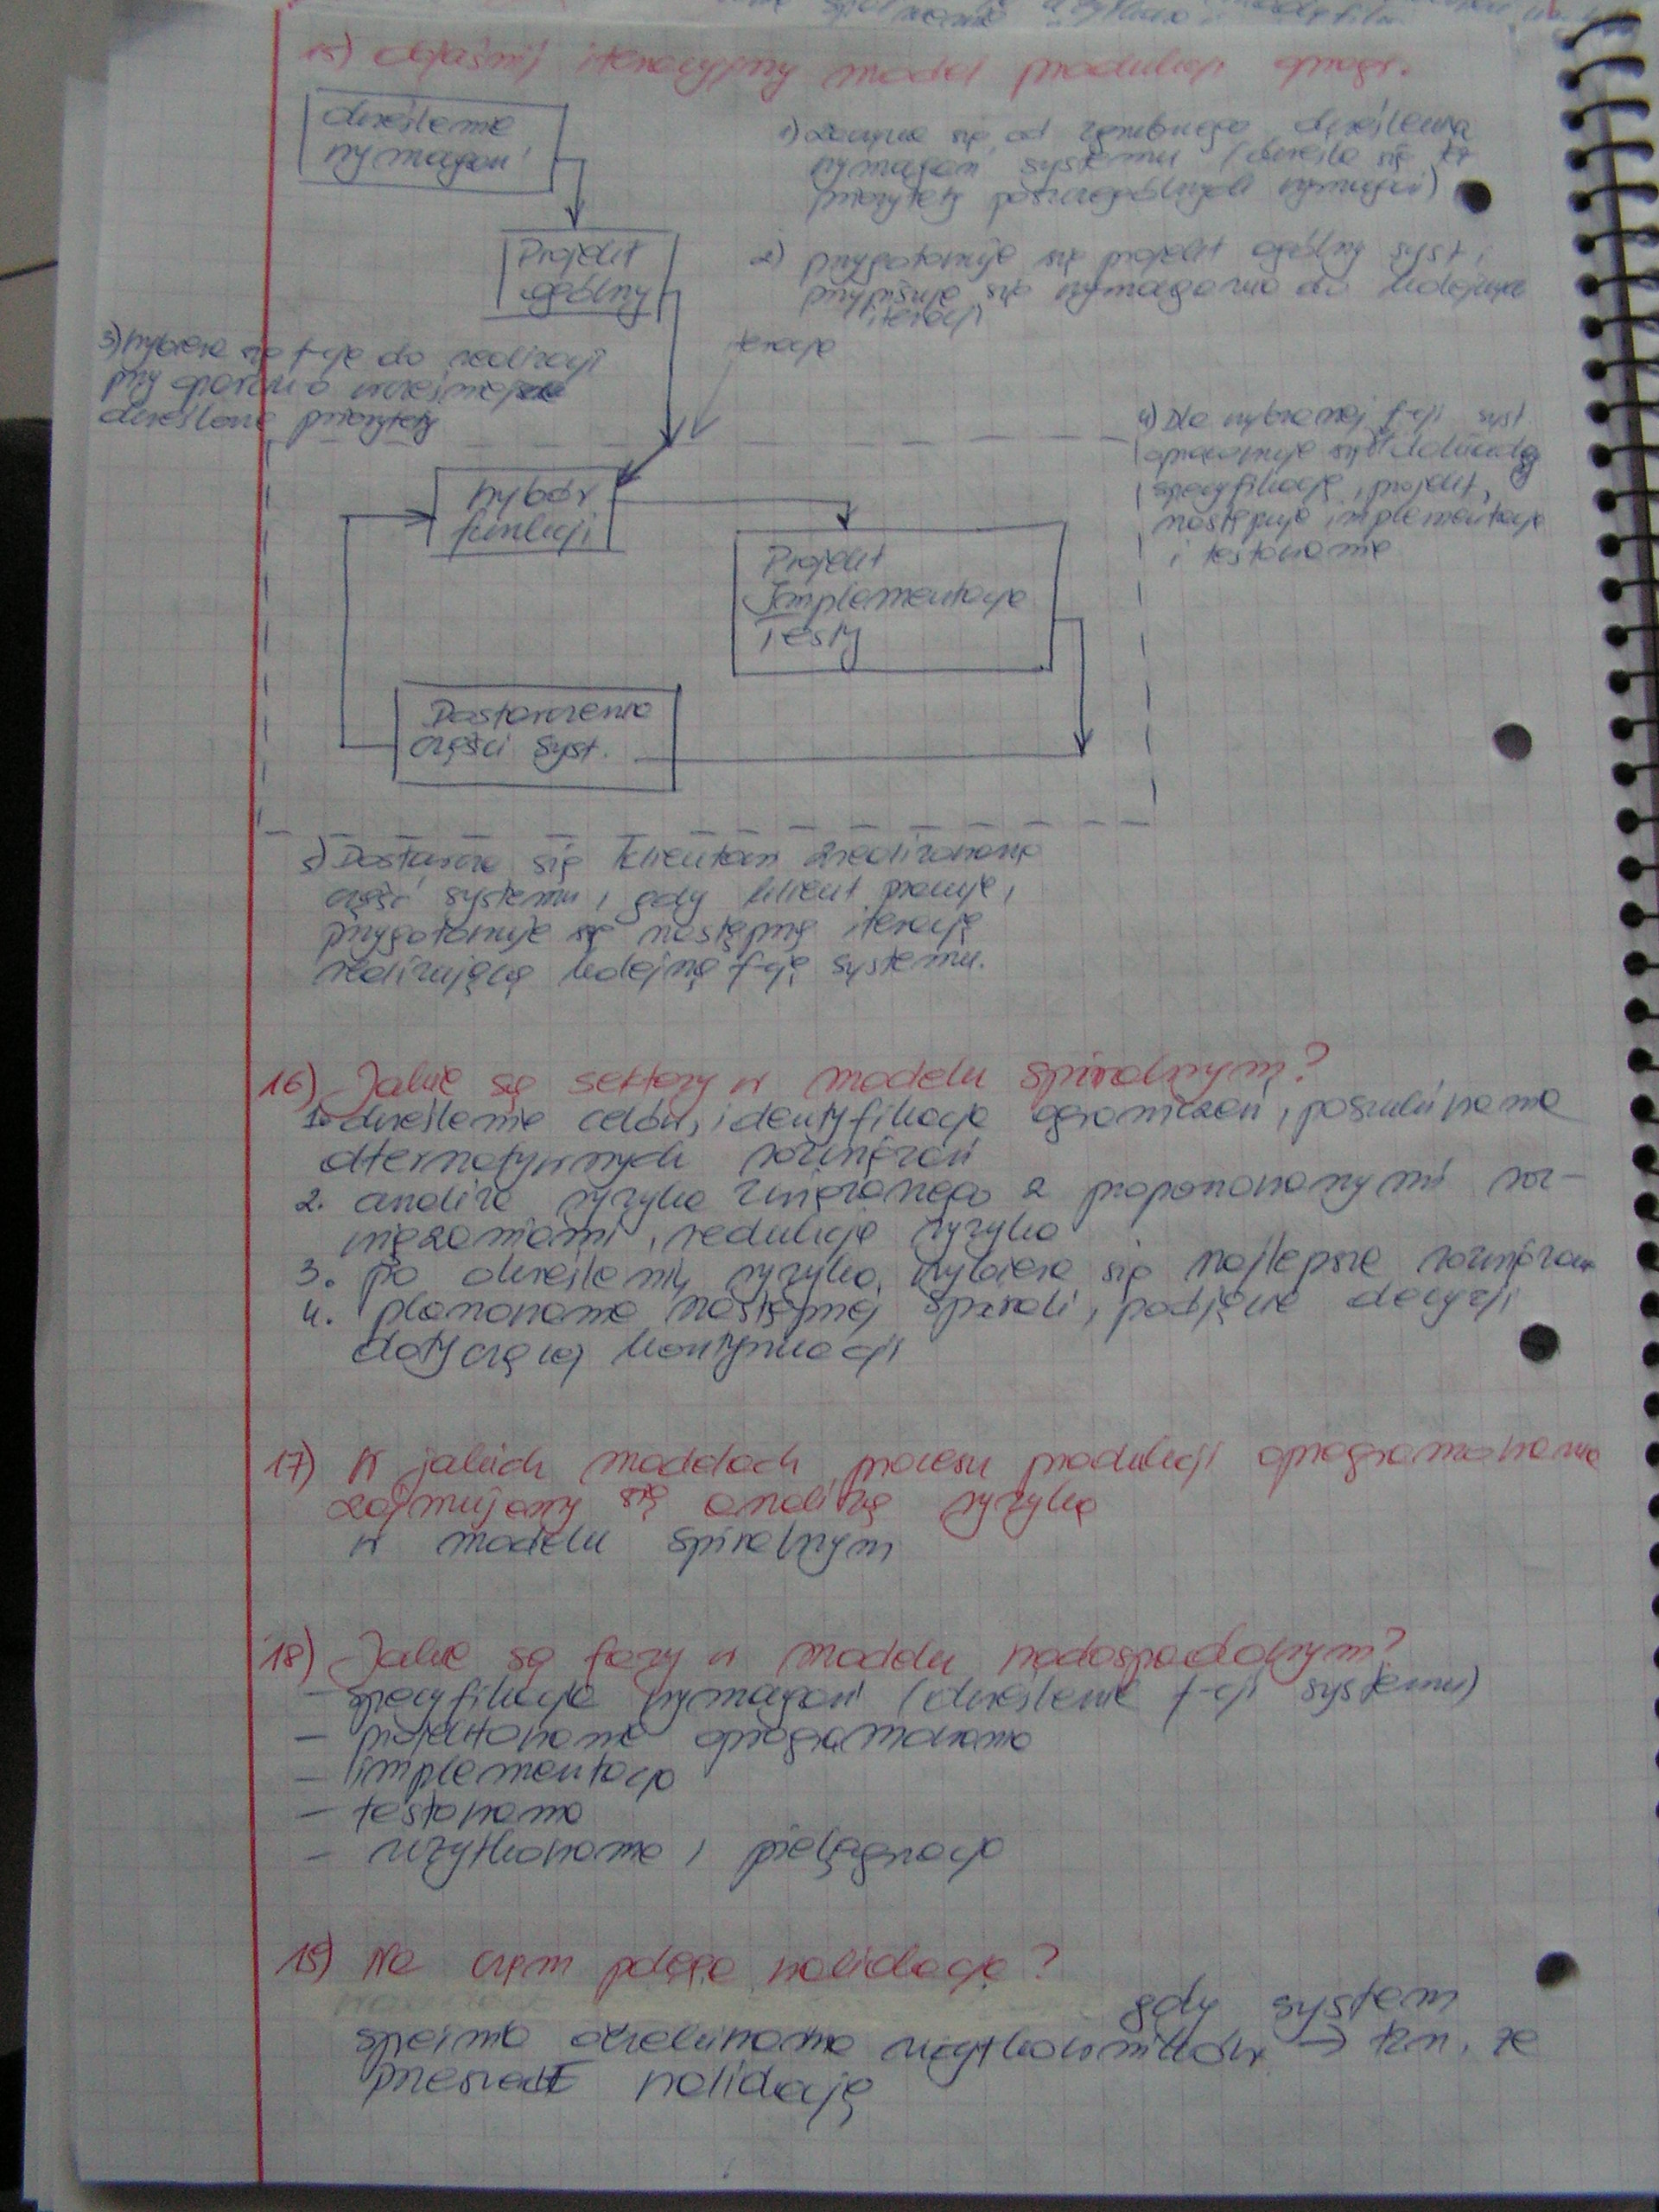 15) Objaśnij iteracyjny model produkcji oprogr.
określenie
wymagań
1) Zaczyna się od zgrubnego określenia
wymagań systemu (określa się też
priorytety poszczególnych wymagań)
Projekt
ogólny
2) przygotowuje się projekt ogólny syst,
przypisuje się wymagania do kolejnych
iteracji
iteracja
3) wybiera się f-cje do realizacji
przy oparciu o wcześniej
określone priorytety
4) Dla wybranej f-cji syst
opracowuje się dokładną
specyfikację, projekt,
następuje implementacja
i testowanie
wybór
funkcji
Projekt
Implementacja
Testy
Dostarczenie
części syst.
5) Dostarcza się klientom zrealizowaną
część systemu, gdy klient pracuje,
przygotowuje się następną iterację
realizującą kolejną f-cję systemu.
16) Jakie są sektory w modelu spiralnym?
1. określenie celów, identyfikacja ograniczeń, poszukiwanie
alternatywnych rozwiązań
2. analiza ryzyka związanego z proponowanymi roz-
wiązaniami, redukcja ryzyka
3. po określeniu ryzyka, wybiera się najlepsze
4. planowanie następnej spirali, podjęcie decyzji
dotyczącej kontynuacji
17) W jakich modelach procesu produkcji oprogramowania
zajmujemy się analizą ryzyka
w modelu spiralnym
18) Jakie są fazy w modelu wodospadowym?
- specyfikacja wymagań (określenie f-cji systemu)
- projektowanie oprogramowania
- implementacja
- testowanie
- użytkowanie i pielęgnacja
19) Na czym polega walidacja?
gdy system
spełnia oczekiwania użytkowników → tzn. że
przeszedł walidację